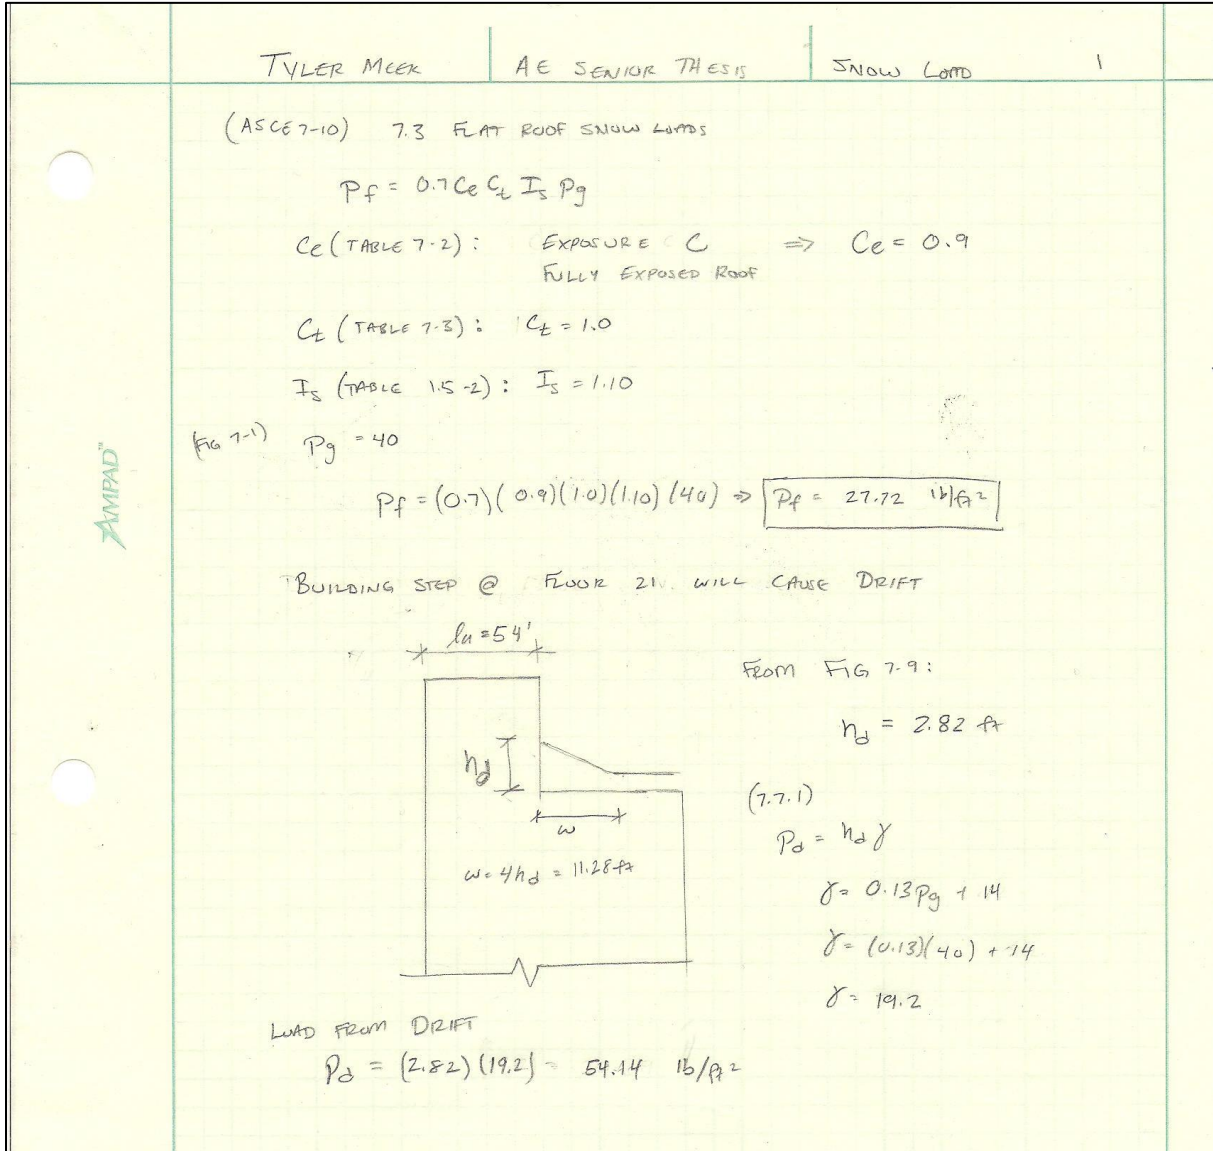 TYLER MEEK AE SENIOR THESIS SNOW LOAD 1
(ASCE 7-10) 7.3 FLAT ROOF SNOW LOADS
Pf = 0.7 Ce Ct Is Pg
Ce (TABLE 7-2): EXPOSURE C ⇒ Ce = 0.9
FULLY EXPOSED ROOF
Ct (TABLE 7-3): Ct = 1.0
Is (TABLE 1.5-2): Is = 1.10
(FIG 7-1) Pg = 40
AMPAD™
Pf = (0.7)(0.9)(1.0)(1.10)(40) ⇒ Pf = 27.72 lb/ft²
BUILDING STEP @ FLOOR 21 WILL CAUSE DRIFT
lu = 54'
FROM FIG 7-9:
hd = 2.82 ft
hd
(7.7.1)
w
Pd = hd γ
w = 4hd = 11.28 ft
γ = 0.13 Pg + 14
γ = (0.13)(40) + 14
γ = 19.2
LOAD FROM DRIFT
Pd = (2.82)(19.2) = 54.14 lb/ft²